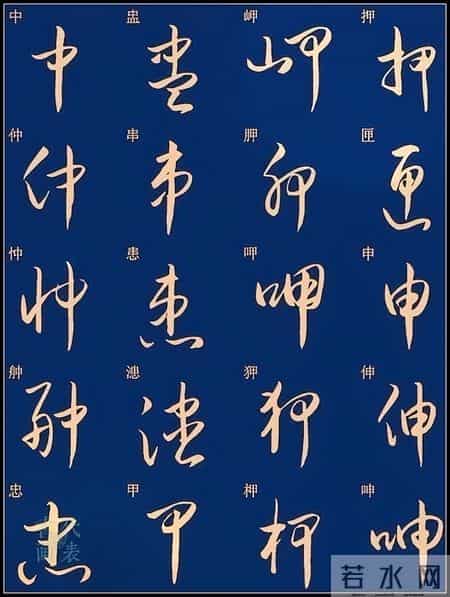 中 盅 岬 押
中 盅 岬 押
仲 串 胛 匣
仲 串 胛 匣
忡 患 呷 申
忡 患 呷 申
舯 漶 狎 伸
舯 漶 狎 伸
忠 甲 柙 呻
忠 甲 柙 呻
若水网